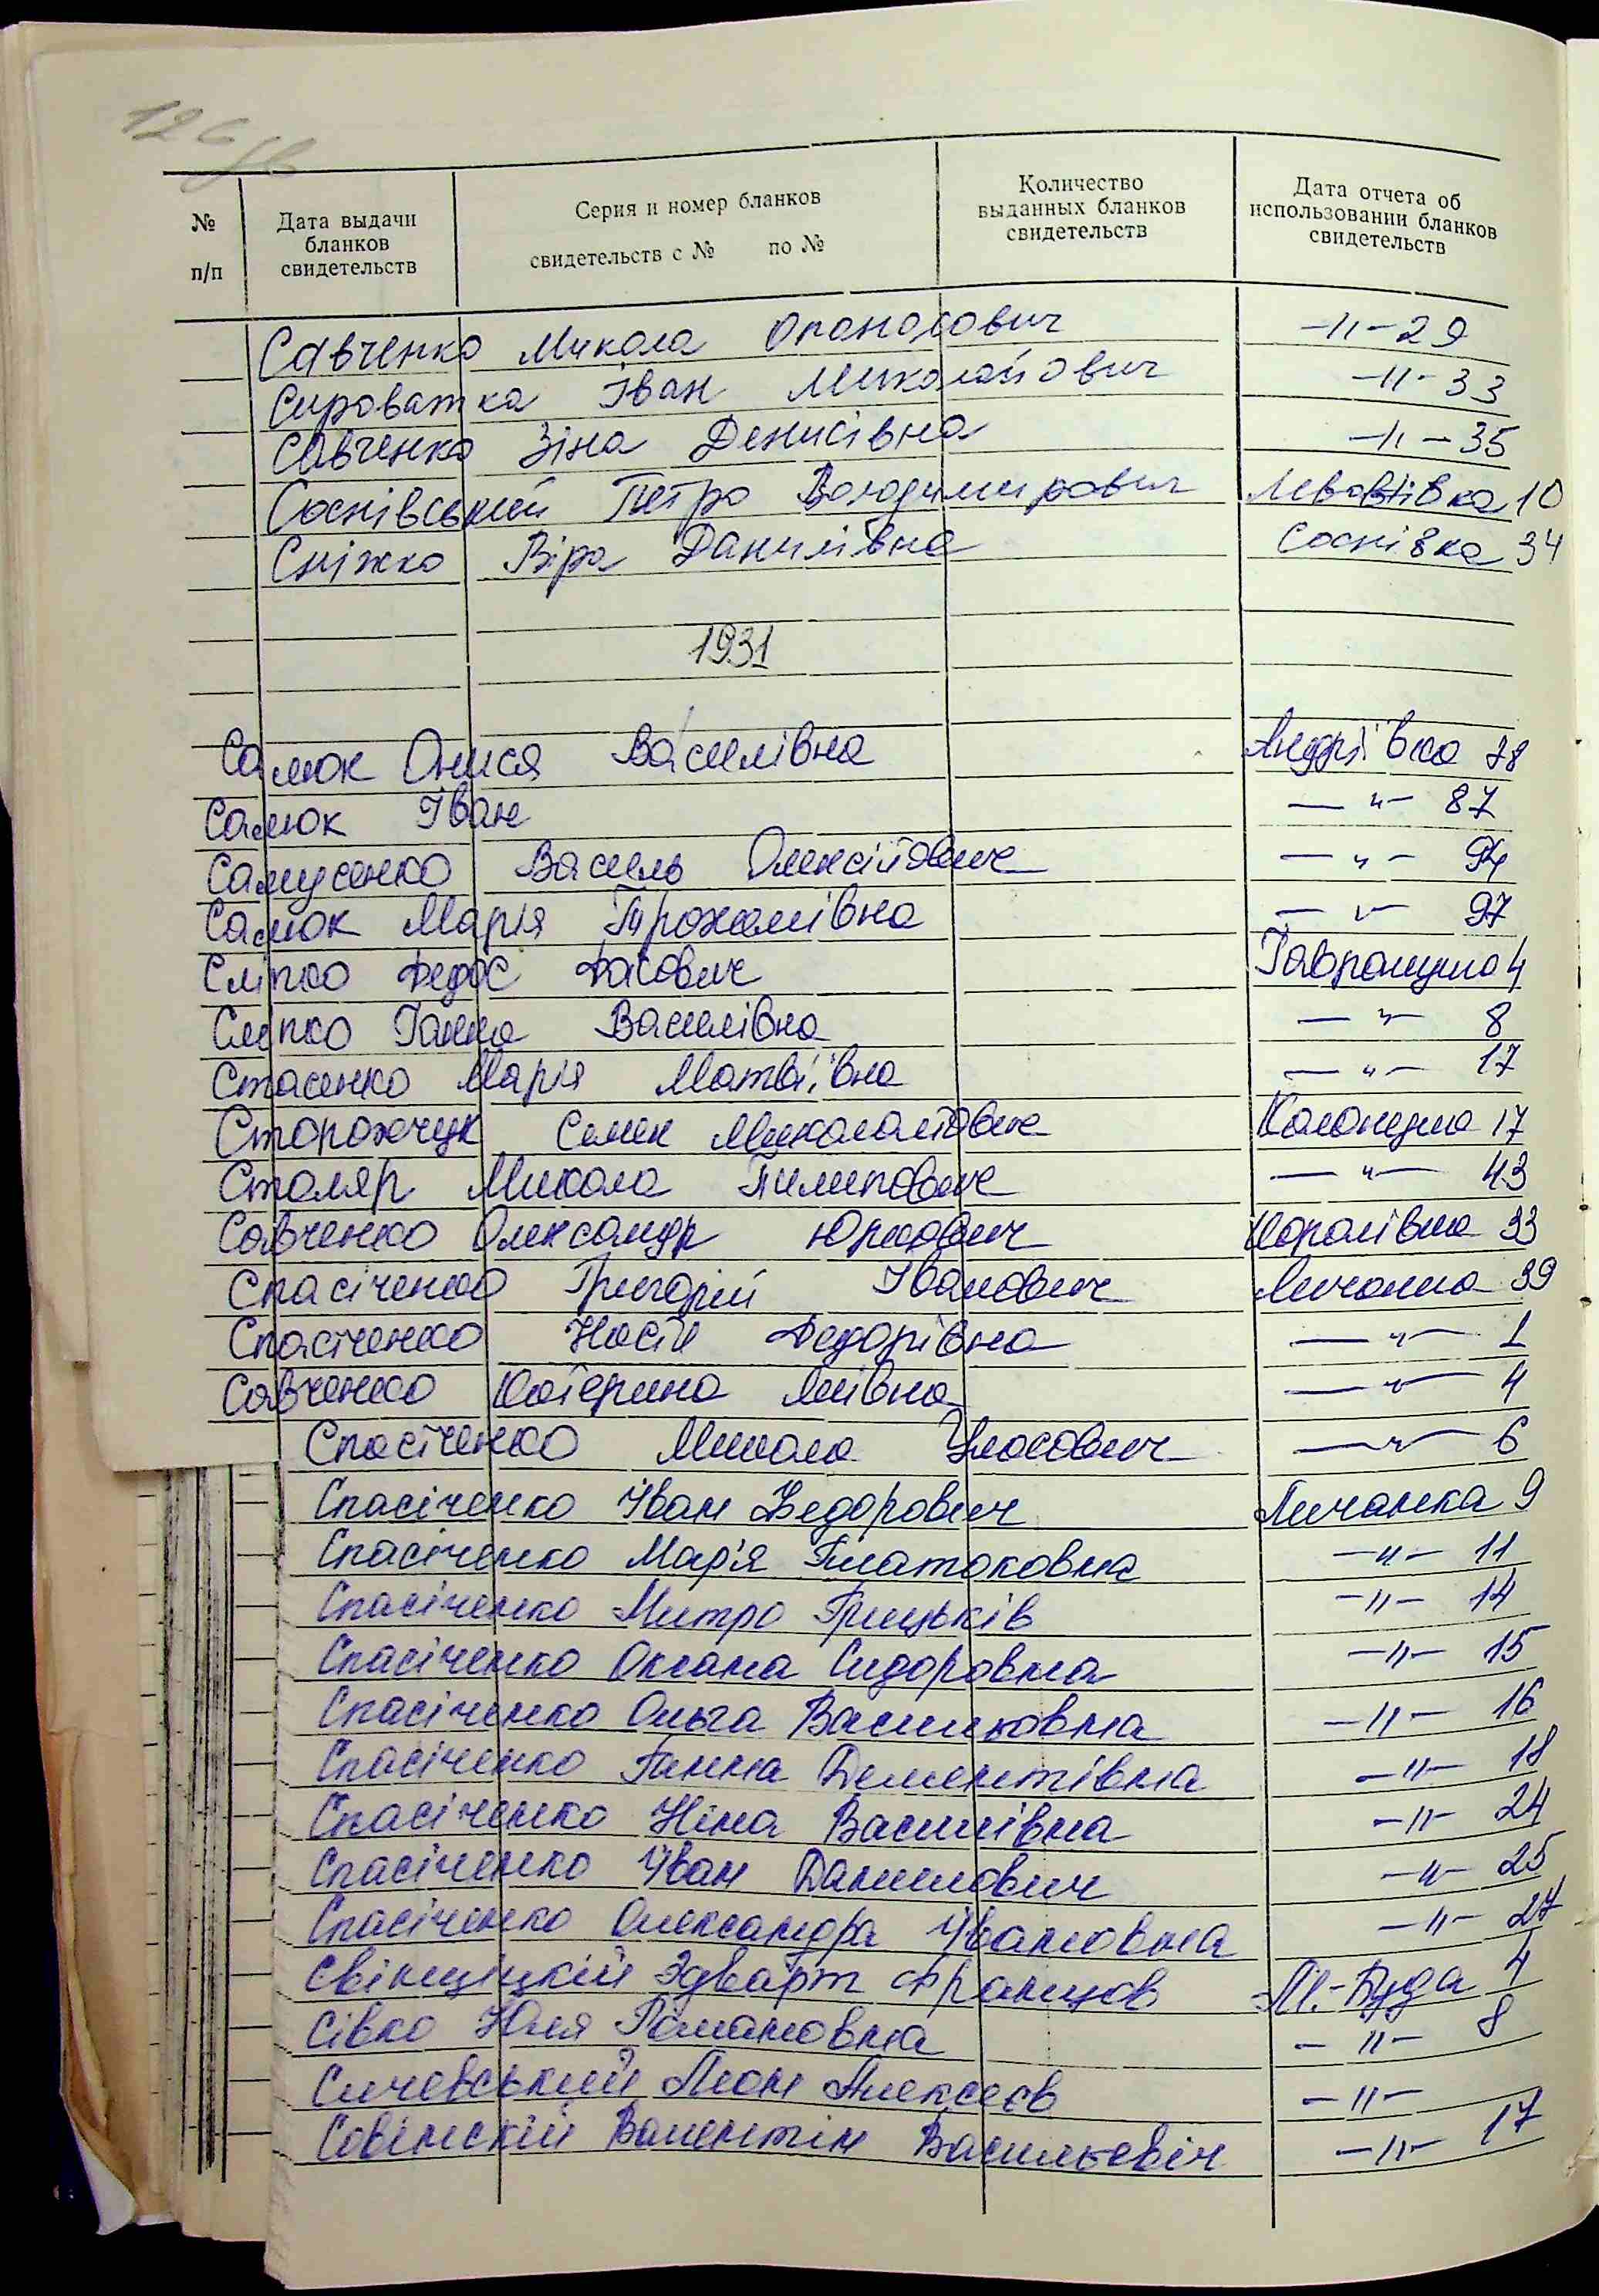 № п/п
Дата выдачи бланков свидетельств
Серия и номер бланков свидетельств с № по №
Количество выданных бланков свидетельств
Дата отчета об использовании бланков свидетельств
Савченко Микола Опонасович -"- 29
Сироватка Іван Миколайович -"- 33
Савченко Зіна Денисівна -"- 35
Соснівський Петро Володимирович 10
Сніжко Віра Данилівна Соснівка 34
1931
Самюк Онися Василівна Андріївка 78
Самюк Іван -"- 87
Самусенко Василь Олексійович -"- 94
Самюк Марія Трохимівна -"- 97
Сліпко Федос Гавронщина 4
Сліпко Ганна Василівна -"- 8
Стасенко Марія Матвіївна -"- 17
Сторожчук Семен Миколайович Колонщина 17
Столяр Микола Пилипович -"- 43
Савченко Олександр Юркович Королівка 33
Спасіченко Григорій Іванович Личанка 39
Спасіченко Настя Федорівна -"- 1
Савченко Катерина -"- 4
Спасіченко Микола Уласович -"- 6
Спасіченко Іван Федорович Личанка 9
Спасіченко Мар'я Платоновна -"- 11
Спасіченко Митро Грицьків -"- 14
Спасіченко Оксана Сидоровна -"- 15
Спасіченко Ольга Васильовна -"- 16
Спасіченко Ганна Дементівна -"- 18
Спасіченко Ніна Василівна -"- 24
Спасіченко Іван Данилович -"- 25
Спасіченко Олександра Івановна -"- 27
Свінціцкій Эдварт Францов М.-Буда 4
Сівко Юля Романовна -"- 8
Сичевський Леон Алексеєв -"-
Совінскій Валентін Васильєвіч -"- 17